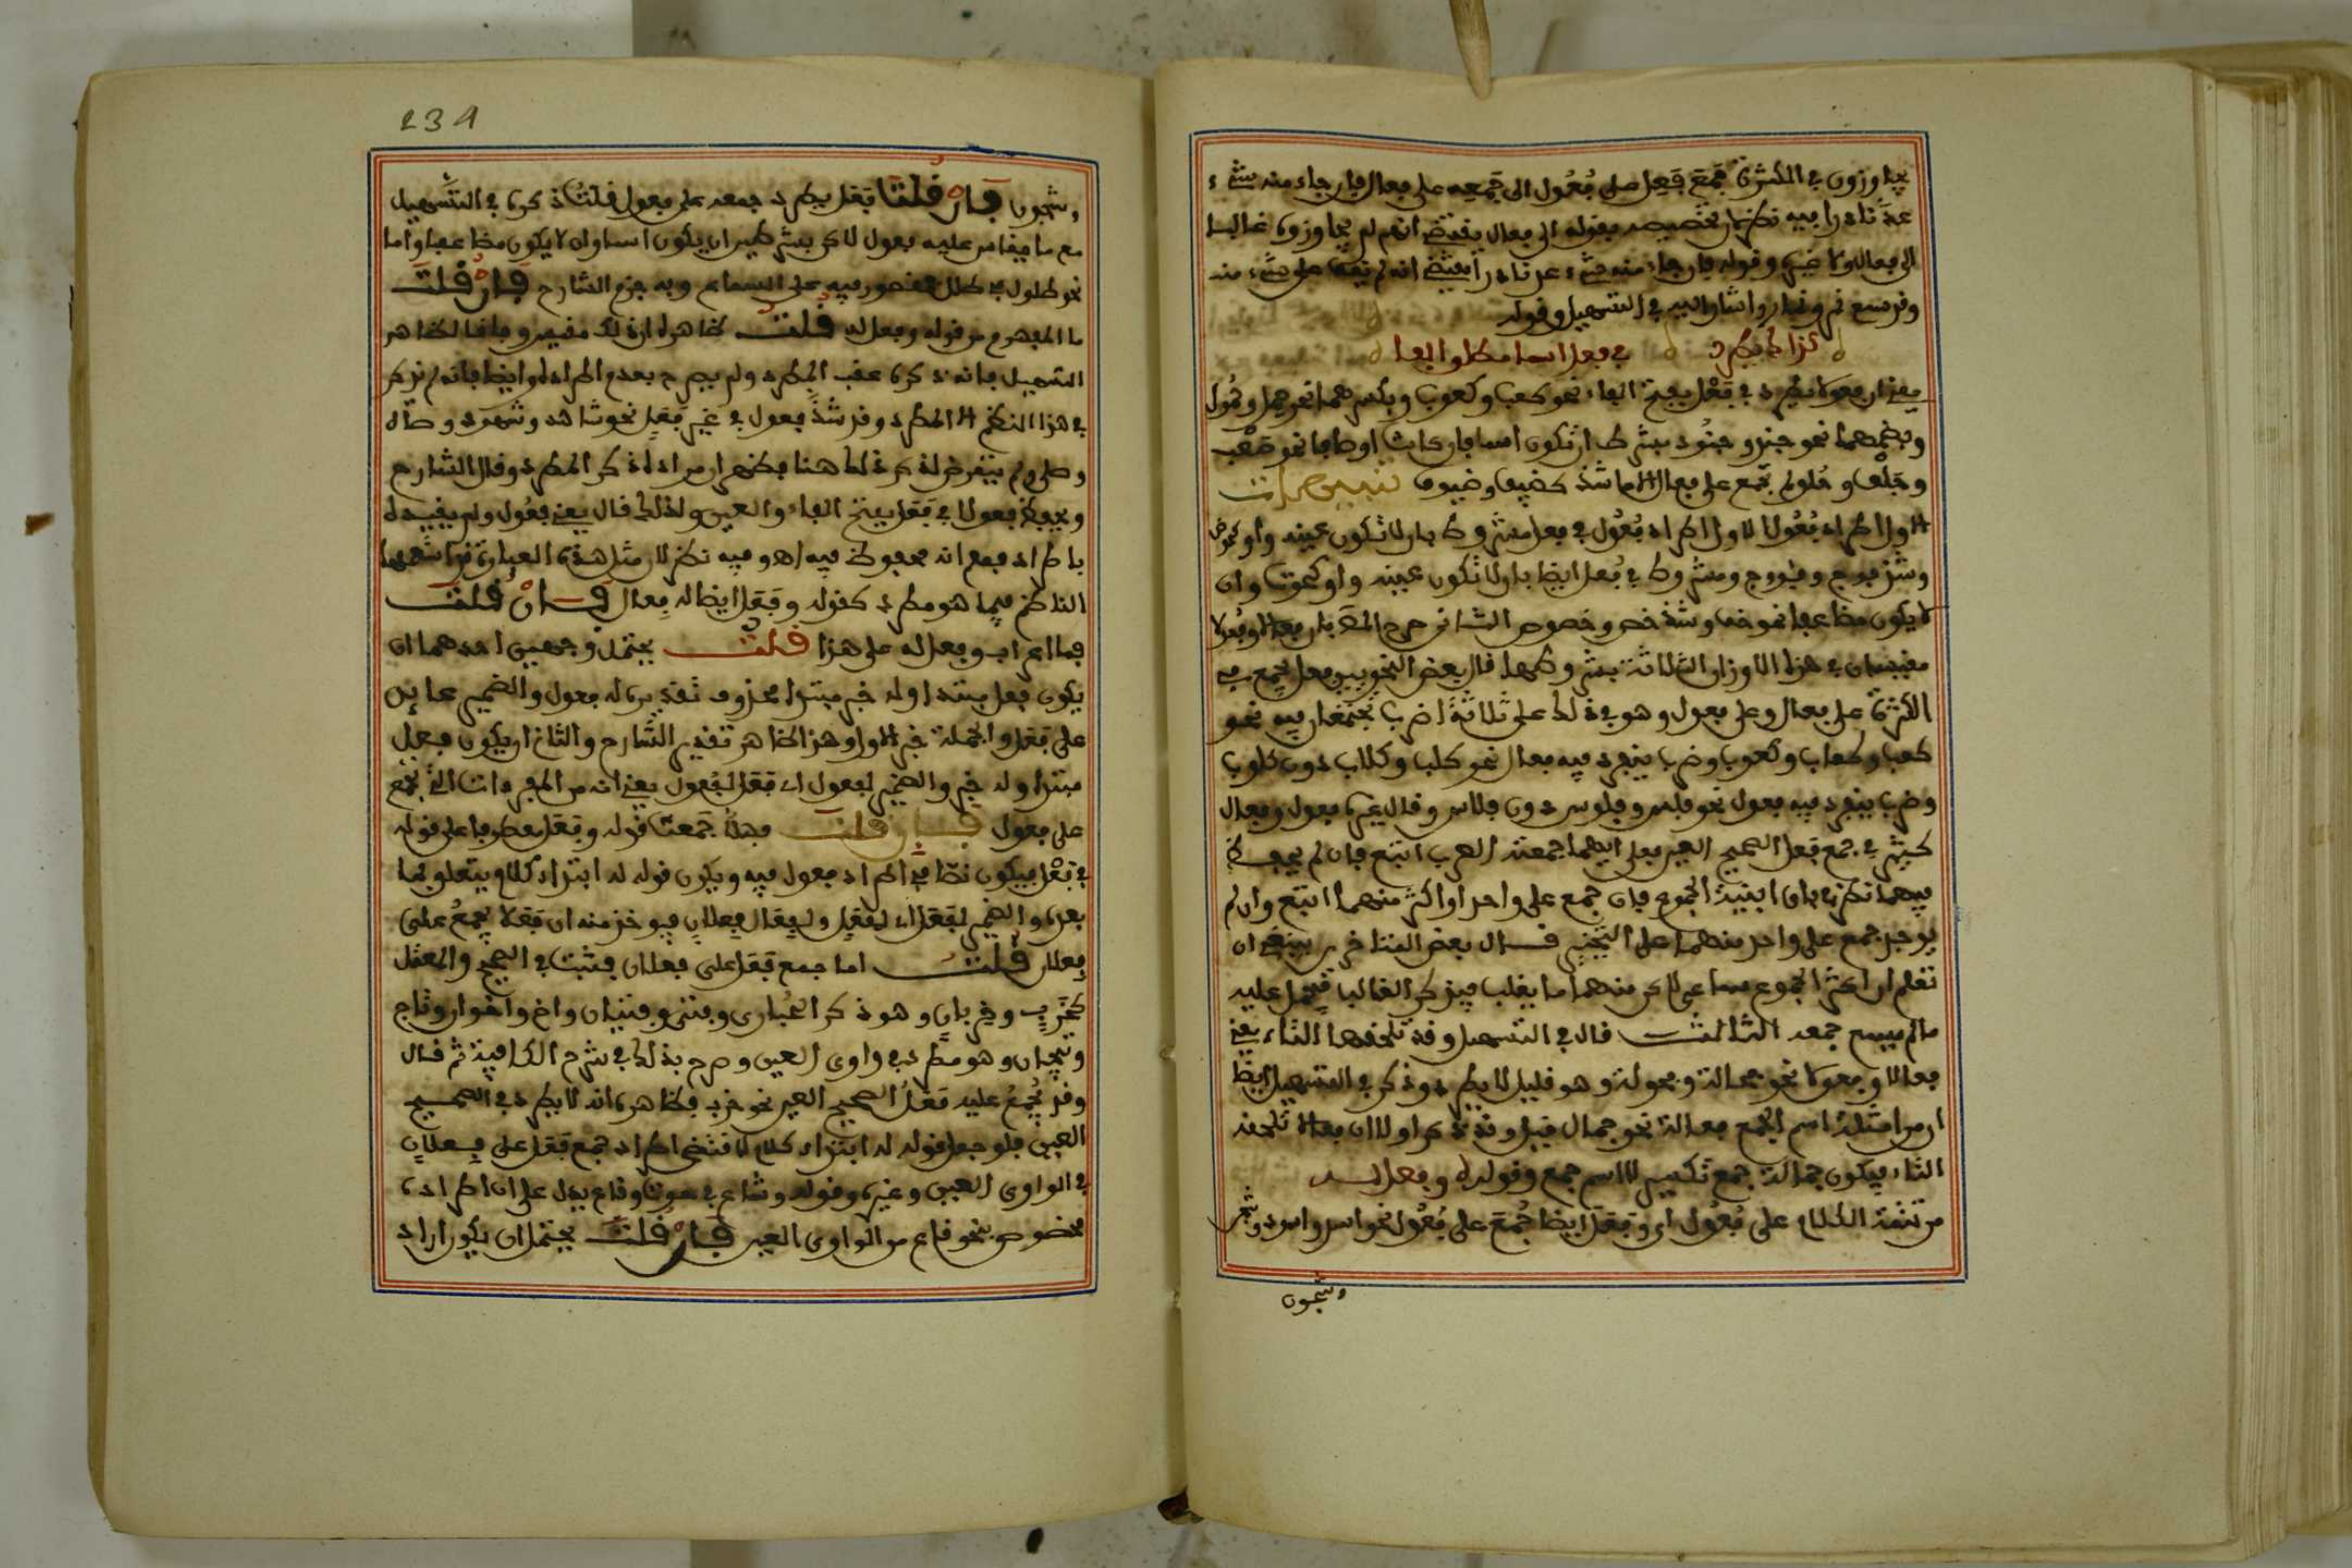 يجاوزون في الكثرة جمع فعل على فُعُول الى جمعه على فعال فان جاء منه شيء
عد نادرا ففيه نظر لان تخصيصه بقوله الى فعال يقتضي انهم لم يجاوزوه غالبا
الى فعال ولا ضير وقوله فان جاء منه شيء عد نادرا يقتضي انه لم يقف على شيء منه
وقد سمع نمر ونمار واشار اليه في التسهيل وقوله
كذاك يطرد في فعل اسما مطلق الفا
يعني ان فعولا يطرد في فَعْل بفتح الفاء نحو كعب وكعوب وبكسرهما نحو حمل وحُمُول
وبضمهما نحو جند وجنُود بشرط ان تكون اسما فان كانت اوصافا نحو صَعْب
وجِلْف وحُلو لم تجمع على فعال الا ما شذ كضيف وضيوف تنبيهات
الاول اطراد فُعُول الاول اطراد فُعُول في فعل مشروط بان لا تكون عينه واوا كحوض
وشذ فوج وفُووج ومشروط في فُعل ايضا بان لا تكون عينه واو كحوت وان
لا يكون مضاعفا نحو خف وشذ خص وخصوص الثاني صرح المص بان فعالا وفُعُولا
مقيسان في هذا الاوزان الثلاثة بشروطها قال بعض النحويين وفعل يجمع في
الكثرة على فعال وعلى فعول وهو في ذلك على ثلاثة اضرب تجتمعان فيه نحو
كعب وكعاب وكعوب وضرب ينفرد فيه فعال نحو كلب وكلاب دون كلوب
وضرب ينفرد فيه فعول نحو فلس وفلوس دون فلاس وقال غيره فعول وفعال
كثير في جمع فعل الصحيح العين فعلى ايهما جمعته العرب اتبع فان لم يحفظ
فيهما نظر في باق ابنية الجموع فان جمع على واحد او اكثر منهما اتبع وان لم
يوجد جمع على واحد منهما على التخيير قال بعض المتاخرين ينبغي ان
تعلم ان اكثر الجموع سماعي لاكن منهما ما يغلب فيذكر الغالب فيحمل عليه
مالم يسمع جمعه الثالث قال في التسهيل وقد تلحقهما التاء يعني
فعالا وفعولا نحو جمالة وفحولة وهو قليل لا يطرد وذكر في التسهيل ايضا
ان من امثلة اسم الجمع فعالة نحو جمال قبل وقد ذكر اولا ان فعالا تلحقه
التاء فيكون جمالة جمع تكسير لا اسم جمع وقوله وفعل له
من تتمة الكلام على فُعُول اي وفَعَل ايضا جُمع على فُعُول نحو اسد واسود وشجر
وشجون
234
وشجون فان قلت فعل يطرد جمعه على فعول قلت ذكره في التسهيل
مع ما يقاس عليه فعول لاكن بشرطين ان يكون اسما وان لا يكون مضاعفا واما
نحو طلول في طلل فمقصور فيه على السماع وبه جزم الشارح فان قلت
ما المفهوم من قوله وفعل له قلت ظاهره ان ذلك مقيس وفاقا لظاهر
التسهيل فانه ذكره عقب المطرد ولم يصرح بعدم اطراده وايضا فانه لم يذكر
في هذا النظم الا المطرد وقد شذ فعول في غير فَعِل نحو شاهد وشهود وصال
وصلي ولم يتعرض لذكر ذلك هنا فظهر ان مراده ذكر المطرد وقال الشارح
ويحفظ فعول في فَعَل بفتح الفاء والعين ولذلك قال يعني فعُول ولم يقيده
باطراد فعلم انه محفوظ فيه اهو فيه نظر لان مثل هذه العبارة قد استعملها
الناظم فيما هو مطرد كقوله وفَعَل ايضا له فِعال فان قلت
فما اعراب وفعل له على هذا قلت يحتمل وجهين احدهما ان
يكون فعل مبتدا وله خبر مبتدا محذوف تقديره له فعول والضمير عائد
على فَعَل والجملة خبر الاول وهذا ظاهر تقدير الشارح والثاني ان يكون فعل
مبتدا وله خبر والضمير لفعول اي فَعَل لفُعول يعني انه من المفردات التي تجمع
على فعول فان قلت فهلا جمعت قوله وفَعَل معطوفا على قوله
في فَعْل فيكون نصا في اطراد فعول فيه ويكون قوله له ابتداء كلام يتعلق بما
بعده والضمير لفَعَل اي لفَعَل ولفِعَال فِعلان فيوخذ منه ان فَعَلا يجمعُ على
فِعلان قلت اما جمع فَعَل على فِعلان فثبت في الصحيح والمعتل
كخَرَب وخِربان وهو ذكر الحُبارى وفتى وفتيان واخ واخوان وتاج
وتيجان وهو مطرد في واوي العين وصرح بذلك في شرح الكافية ثم قال
وقد يُجمَعُ عليه فَعَلُ الصحيح العين نحو خرب فظاهره انه لا يطرد في الصحيح
العين فلو جعل قوله له ابتداء كلام لاقتضى اطراد جمع فَعَل على فِعلان
في الواوي العين وغيره وقوله وشاع في حوت وقاع يدل على ان اطراده
مخصوص بنحو قاع من الواوي العين فان قلت يحتمل ان يكون اراد